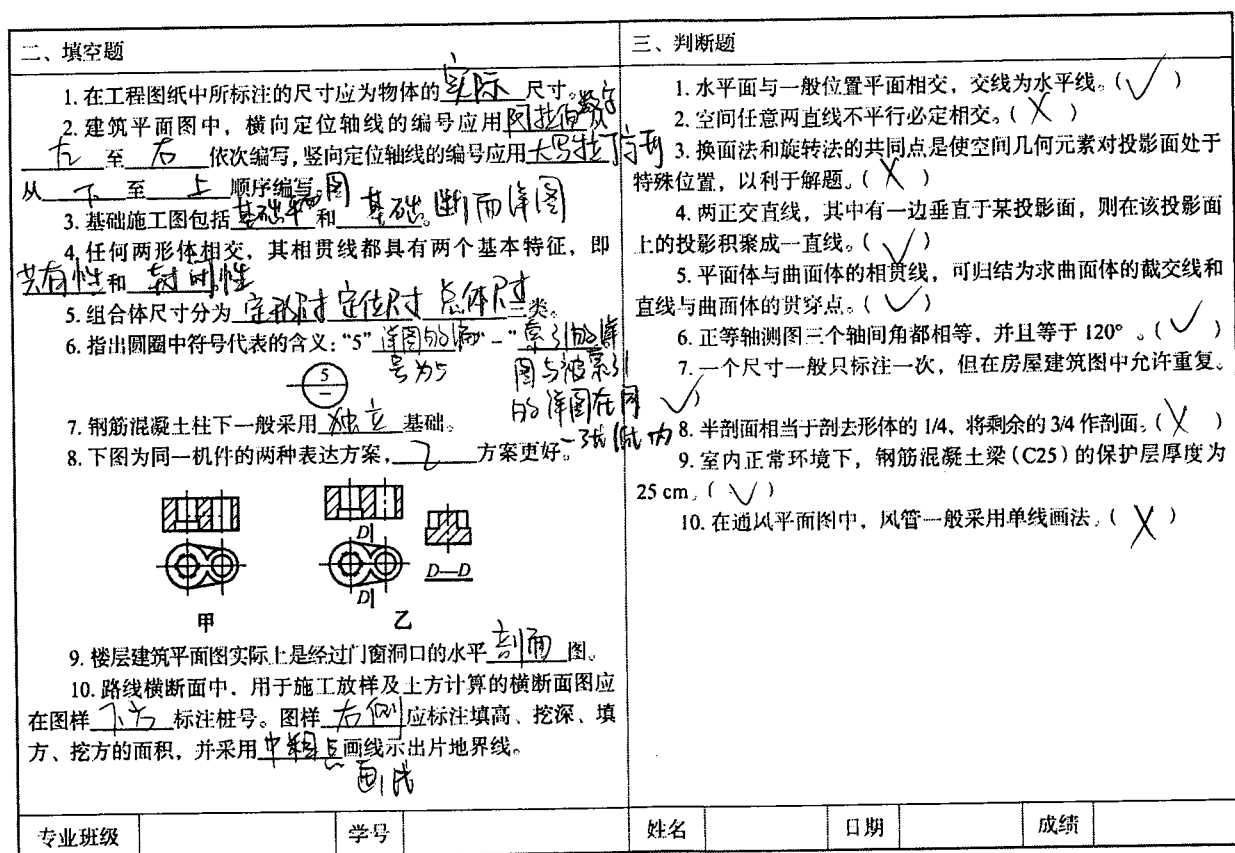 二、填空题
1. 在工程图纸中所标注的尺寸应为物体的 实际 尺寸。
2. 建筑平面图中，横向定位轴线的编号应用 阿拉伯数字
左 至 右 依次编写，竖向定位轴线的编号应用 大写拉丁字母
从 下 至 上 顺序编写。
3. 基础施工图包括 基础平面图 和 基础断面详图。
4. 任何两形体相交，其相贯线都具有两个基本特征，即
共有性 和 封闭性
5. 组合体尺寸分为 定形尺寸 定位尺寸 总体尺寸 三类。
6. 指出圆圈中符号代表的含义：“5” 详图的编号为5 “-” 索引的详图与被索引的详图在同一张纸内
5
—
7. 钢筋混凝土柱下一般采用 独立 基础。
8. 下图为同一机件的两种表达方案， 乙 方案更好。
D
D—D
D
甲
乙
9. 楼层建筑平面图实际上是经过门窗洞口的水平 剖面 图。
10. 路线横断面中，用于施工放样及土方计算的横断面图应
在图样 下方 标注桩号。图样 右侧 应标注填高、挖深、填
方、挖方的面积，并采用 中粗点画线 画线示出片地界线。
三、判断题
1. 水平面与一般位置平面相交，交线为水平线。（√）
2. 空间任意两直线不平行必定相交。（X）
3. 换面法和旋转法的共同点是使空间几何元素对投影面处于
特殊位置，以利于解题。（X）
4. 两正交直线，其中有一边垂直于某投影面，则在该投影面
上的投影积聚成一直线。（√）
5. 平面体与曲面体的相贯线，可归结为求曲面体的截交线和
直线与曲面体的贯穿点。（√）
6. 正等轴测图三个轴间角都相等，并且等于 120° 。（√）
7. 一个尺寸一般只标注一次，但在房屋建筑图中允许重复。
√）
8. 半剖面相当于剖去形体的 1/4，将剩余的 3/4 作剖面。（X）
9. 室内正常环境下，钢筋混凝土梁（C25）的保护层厚度为
25 cm。（√）
10. 在通风平面图中，风管一般采用单线画法。（X）
专业班级 学号 姓名 日期 成绩